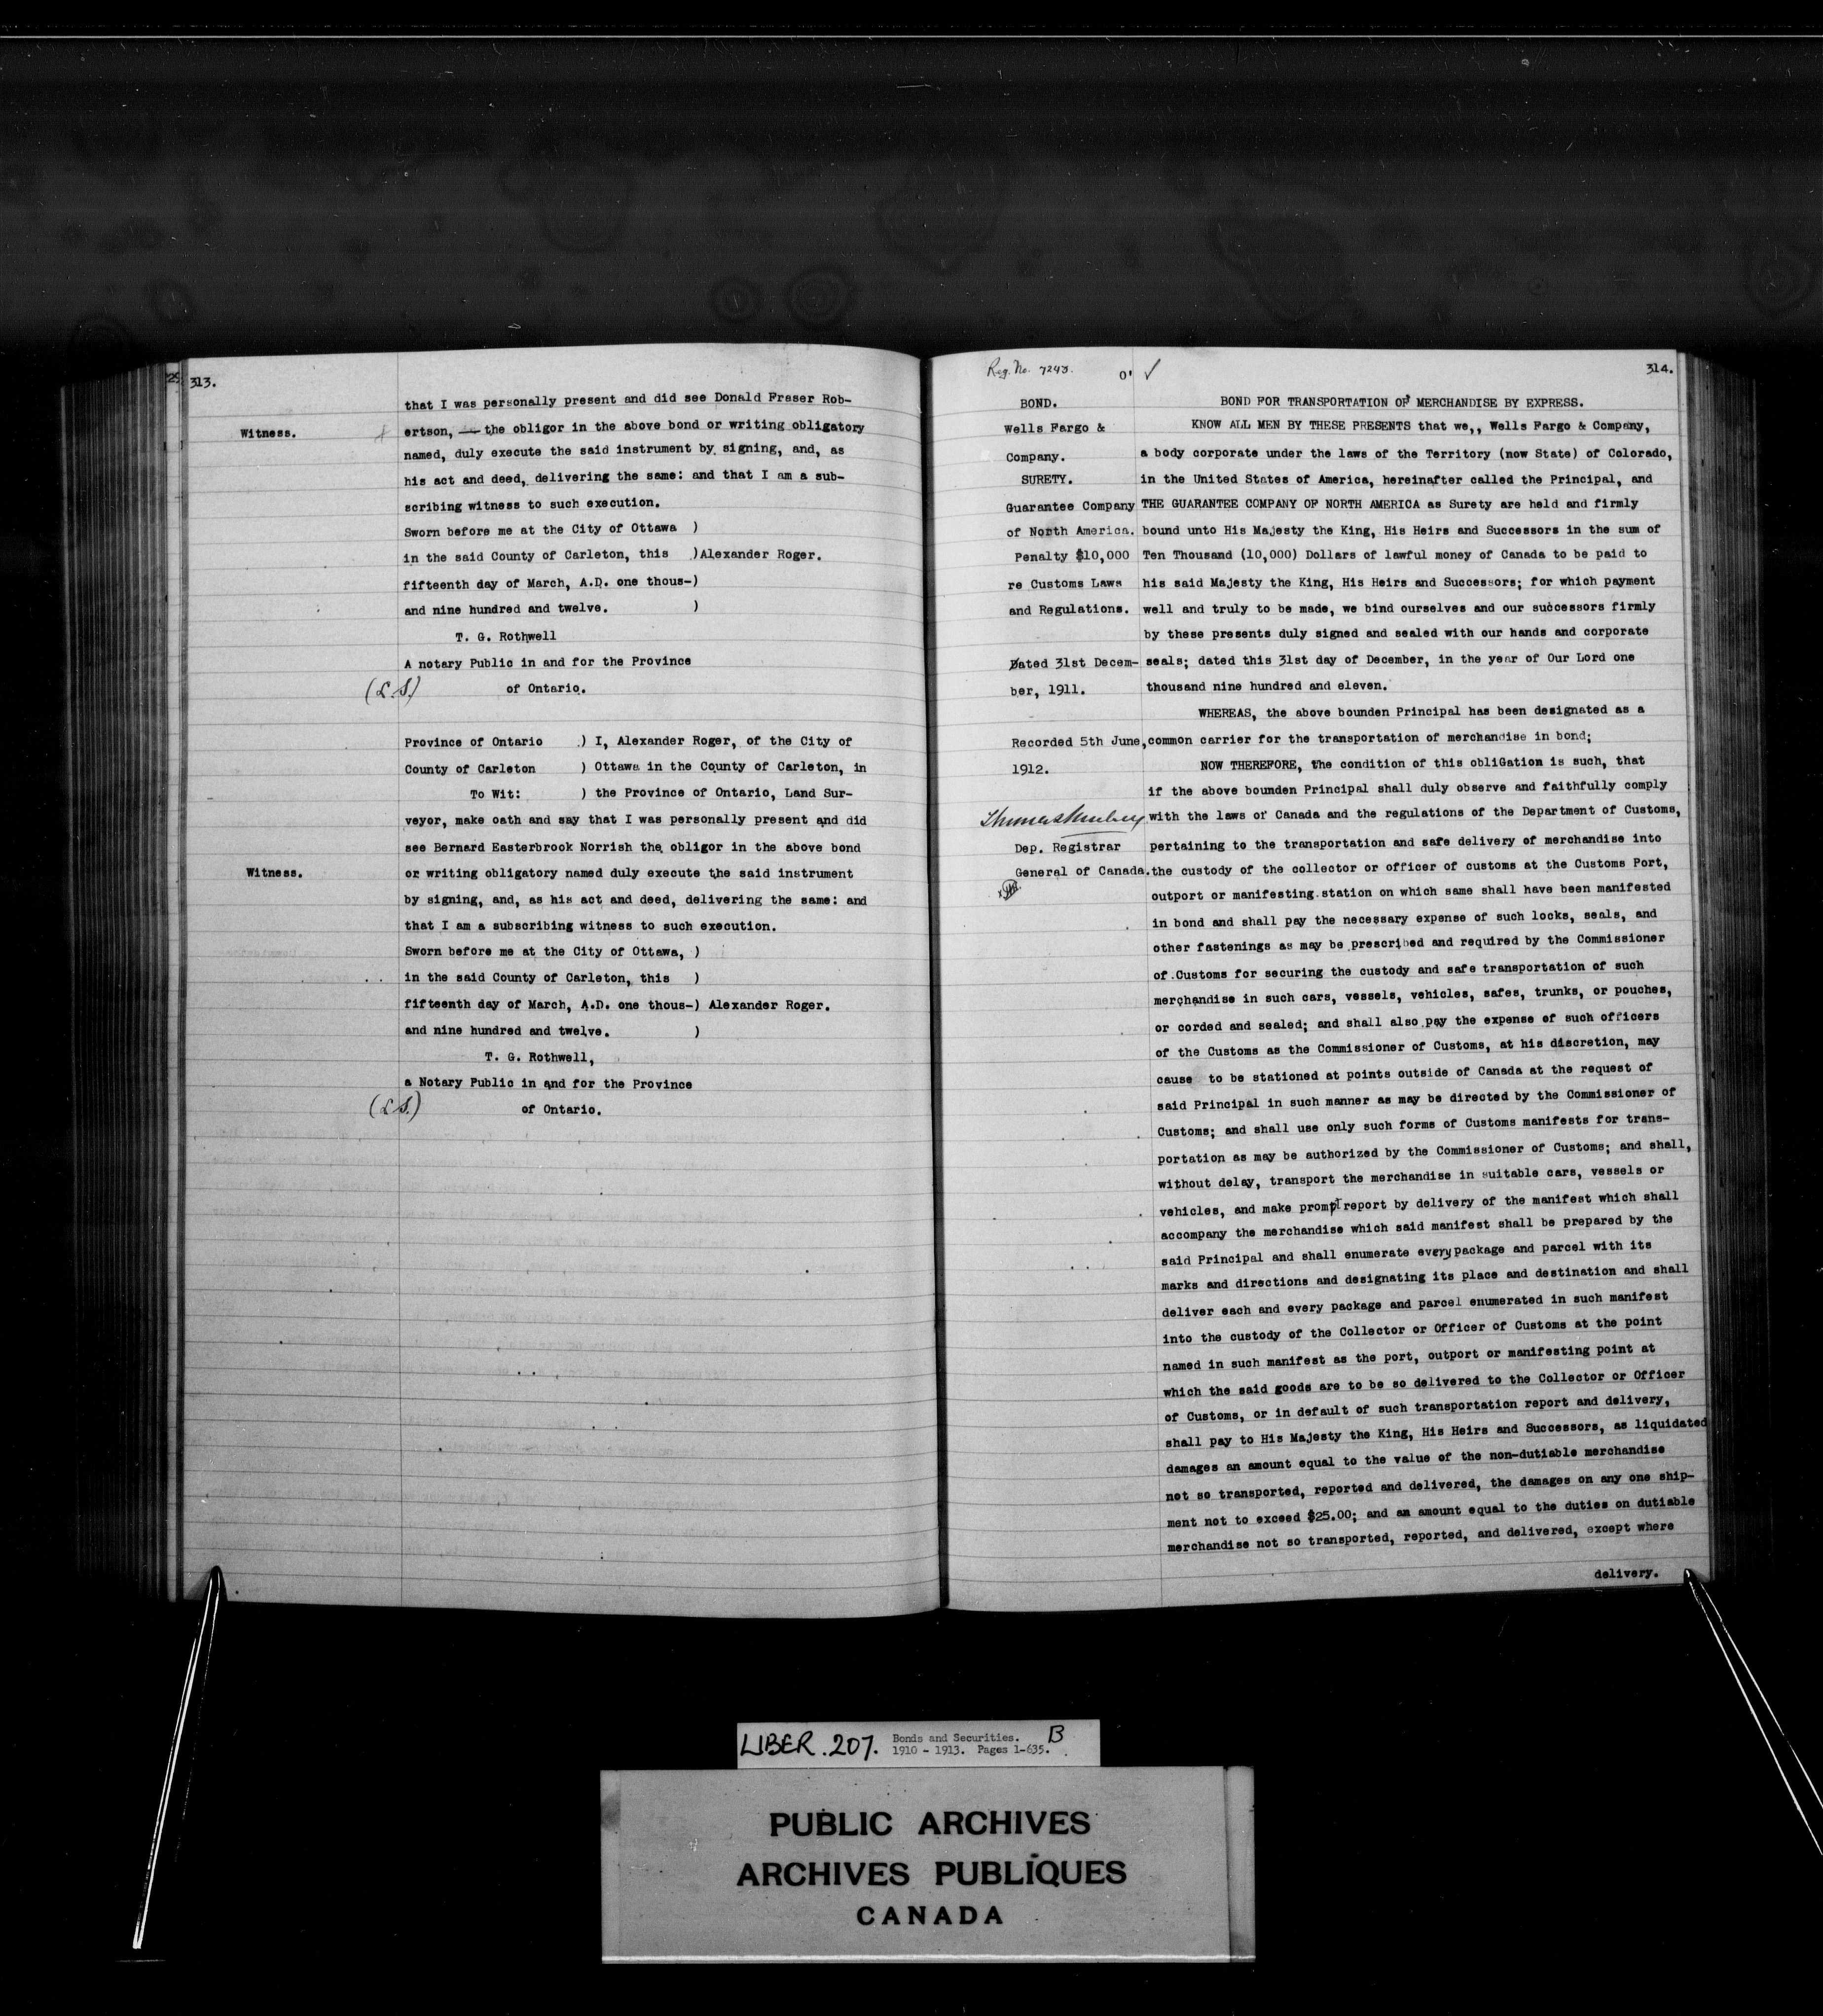 313.
that I was personally present and did see Donald Fraser Rob-
Witness.
ertson, — the obligor in the above bond or writing obligatory
named, duly execute the said instrument by signing, and, as
his act and deed, delivering the same: and that I am a sub-
scribing witness to such execution.
Sworn before me at the City of Ottawa )
in the said County of Carleton, this )Alexander Roger.
fifteenth day of March, A.D. one thous-)
and nine hundred and twelve. )
T. G. Rothwell
A notary Public in and for the Province
(L.S.) of Ontario.
Province of Ontario ) I, Alexander Roger, of the City of
County of Carleton ) Ottawa in the County of Carleton, in
To Wit: ) the Province of Ontario, Land Sur-
veyor, make oath and say that I was personally present and did
see Bernard Easterbrook Norrish the obligor in the above bond
Witness.
or writing obligatory named duly execute the said instrument
by signing, and, as his act and deed, delivering the same: and
that I am a subscribing witness to such execution.
Sworn before me at the City of Ottawa, )
in the said County of Carleton, this )
fifteenth day of March, A.D. one thous-) Alexander Roger.
and nine hundred and twelve. )
T. G. Rothwell,
a Notary Public in and for the Province
(L.S.) of Ontario.
Reg. No. 7243.
314.
BOND.
Wells Fargo &
Company.
SURETY.
Guarantee Company
of North America.
Penalty $10,000
re Customs Laws
and Regulations.
Dated 31st Decem-
ber, 1911.
Recorded 5th June,
1912.
Dep. Registrar
General of Canada.
BOND FOR TRANSPORTATION OF MERCHANDISE BY EXPRESS.
KNOW ALL MEN BY THESE PRESENTS that we,, Wells Fargo & Company,
a body corporate under the laws of the Territory (now State) of Colorado,
in the United States of America, hereinafter called the Principal, and
THE GUARANTEE COMPANY OF NORTH AMERICA as Surety are held and firmly
bound unto His Majesty the King, His Heirs and Successors in the sum of
Ten Thousand (10,000) Dollars of lawful money of Canada to be paid to
his said Majesty the King, His Heirs and Successors; for which payment
well and truly to be made, we bind ourselves and our successors firmly
by these presents duly signed and sealed with our hands and corporate
seals; dated this 31st day of December, in the year of Our Lord one
thousand nine hundred and eleven.
WHEREAS, the above bounden Principal has been designated as a
common carrier for the transportation of merchandise in bond;
NOW THEREFORE, the condition of this obliGation is such, that
if the above bounden Principal shall duly observe and faithfully comply
with the laws of Canada and the regulations of the Department of Customs,
pertaining to the transportation and safe delivery of merchandise into
the custody of the collector or officer of customs at the Customs Port,
outport or manifesting station on which same shall have been manifested
in bond and shall pay the necessary expense of such locks, seals, and
other fastenings as may be prescribed and required by the Commissioner
of Customs for securing the custody and safe transportation of such
merchandise in such cars, vessels, vehicles, safes, trunks, or pouches,
or corded and sealed; and shall also pay the expense of such officers
of the Customs as the Commissioner of Customs, at his discretion, may
cause to be stationed at points outside of Canada at the request of
said Principal in such manner as may be directed by the Commissioner of
Customs; and shall use only such forms of Customs manifests for trans-
portation as may be authorized by the Commissioner of Customs; and shall,
without delay, transport the merchandise in suitable cars, vessels or
vehicles, and make prompt report by delivery of the manifest which shall
accompany the merchandise which said manifest shall be prepared by the
said Principal and shall enumerate every package and parcel with its
marks and directions and designating its place and destination and shall
deliver each and every package and parcel enumerated in such manifest
into the custody of the Collector or Officer of Customs at the point
named in such manifest as the port, outport or manifesting point at
which the said goods are to be so delivered to the Collector or Officer
of Customs, or in default of such transportation report and delivery,
shall pay to His Majesty the King, His Heirs and Successors, as liquidated
damages an amount equal to the value of the non-dutiable merchandise
not so transported, reported and delivered, the damages on any one ship-
ment not to exceed $25.00; and an amount equal to the duties on dutiable
merchandise not so transported, reported, and delivered, except where
delivery.
LIBER. 207. Bonds and Securities. B
1910 - 1913. Pages 1-635.
PUBLIC ARCHIVES
ARCHIVES PUBLIQUES
CANADA